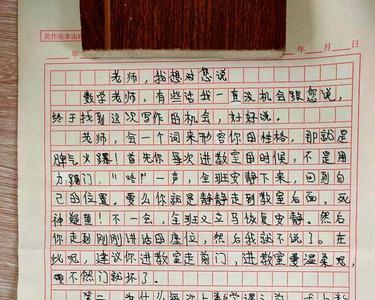 此作业本由
年 月 日
老师，我想对您说
数学老师，有些话我一直没机会跟您说，
终于找到这次写作的机会，好好说。
老师，会一个词来形容你的性格，那就是
脾气火爆！首先你每次进教室的时候，不是用
力踢门，"咚"一声，全班安静下来，回到自
己的位置。要么你就是静静走到教室后面，死
神凝望！不一会，全班又立马恢复安静。然后
你走到刚刚讲话的座位，然后我就不说了。在
此呢，建议你进教室走前门，进教室要温柔吧，
要不然门就坏了。
第二，为什么每次上数学课